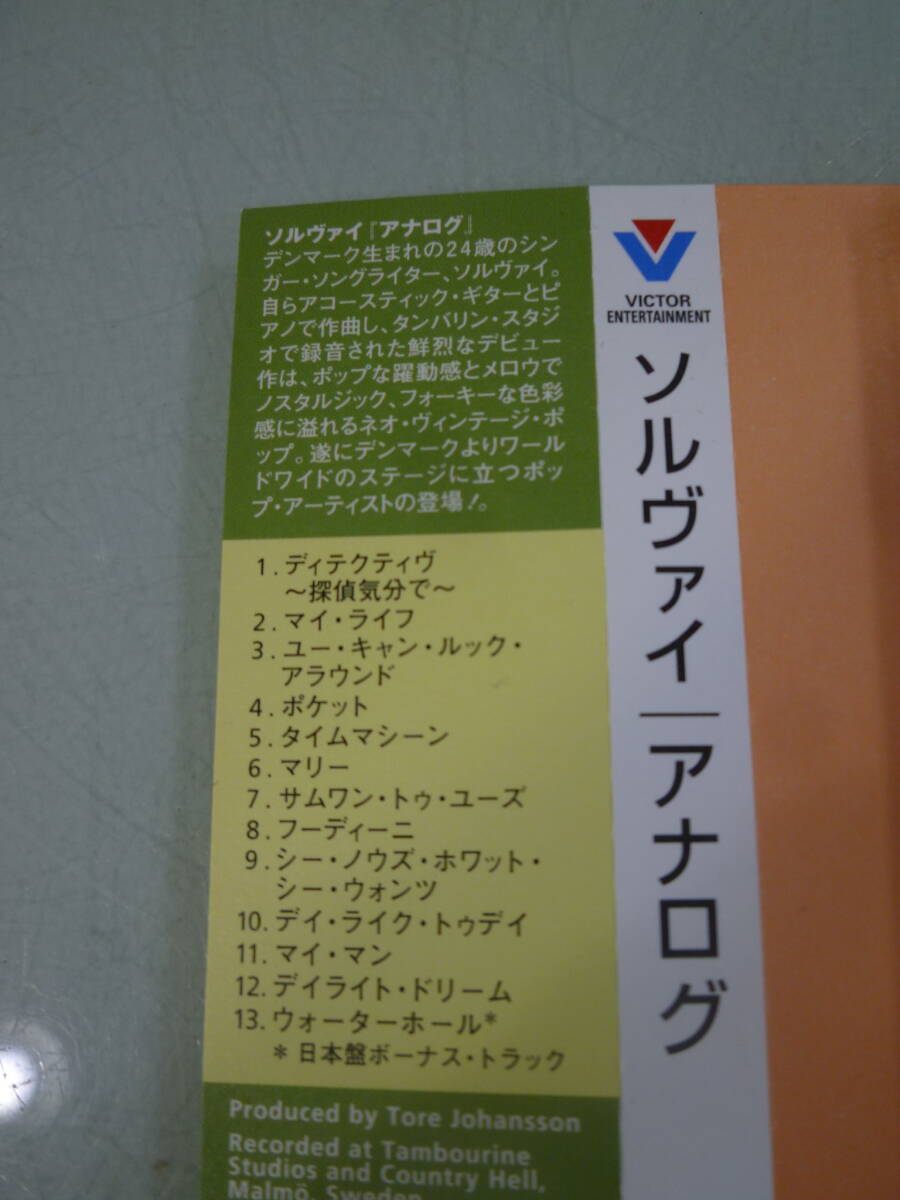 ソルヴァイ『アナログ』
デンマーク生まれの24歳のシン
ガー・ソングライター、ソルヴァイ。
自らアコースティック・ギターとピ
アノで作曲し、タンバリン・スタジ
オで録音された鮮烈なデビュー
作は、ポップな躍動感とメロウで
ノスタルジック、フォーキーな色彩
感に溢れるネオ・ヴィンテージ・ポ
ップ。遂にデンマークよりワール
ドワイドのステージに立つポッ
プ・アーティストの登場!。
1. ディテクティヴ
～探偵気分で～
2. マイ・ライフ
3. ユー・キャン・ルック・
アラウンド
4. ポケット
5. タイムマシーン
6. マリー
7. サムワン・トゥ・ユーズ
8. フーディーニ
9. シー・ノウズ・ホワット・
シー・ウォンツ
10. デイ・ライク・トゥデイ
11. マイ・マン
12. デイライト・ドリーム
13. ウォーターホール*
* 日本盤ボーナス・トラック
Produced by Tore Johansson
Recorded at Tambourine
Studios and Country Hell,
Malmö, Sweden
VICTOR
ENTERTAINMENT
ソルヴァイ｜アナログ